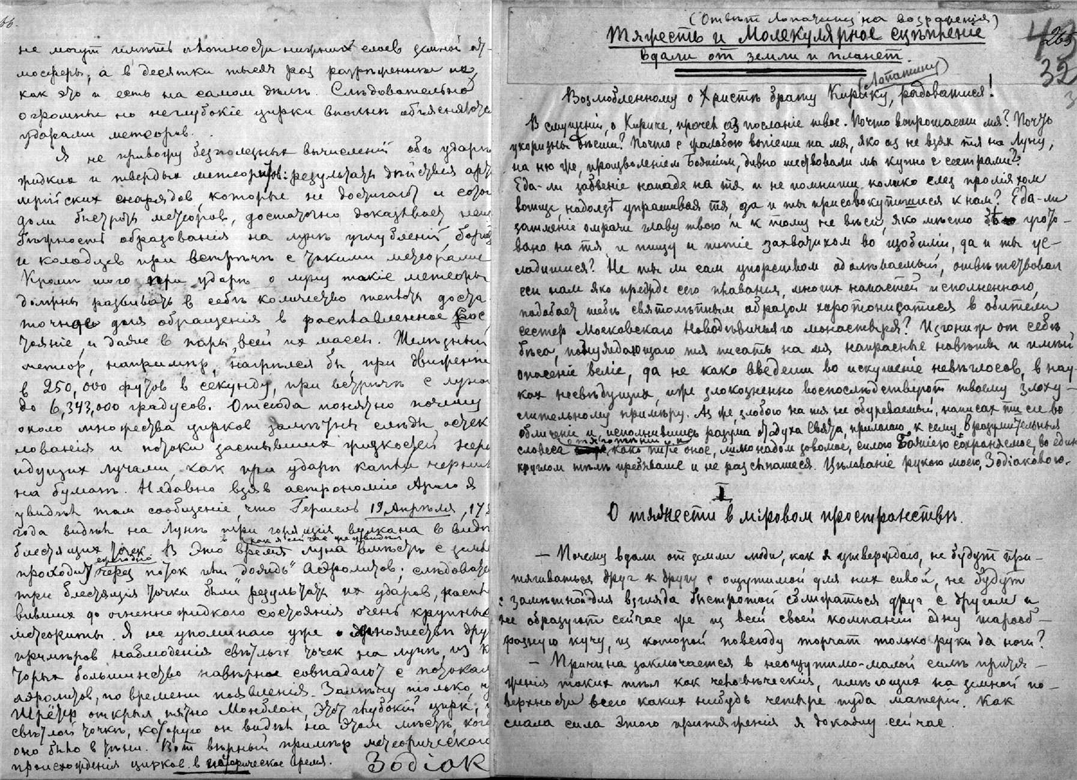 не могут имѣть плотности нижних слоев земной ат-
мосферы, а в десятки тысяч раз разрѣженнѣе их,
как это и есть на самом дѣлѣ. Слѣдовательно
огромные но неглубокіе цирки вполнѣ объясняются
ударами метеоров.
Я не привожу безполезных вычислений объ ударѣ
жидких и твердых метеоритов: результаты дѣйствія арти-
лерійских снарядов, которые не достигают и сотой
доли быстроты метеоров, достаточно доказывает неиз-
бѣжность образованія на лунѣ углубленій, борозд
и колодцев при встрѣчѣ с такими метеорами.
Кромѣ того при ударѣ о луну такіе метеоры
должны развивать в себѣ количество теплоты доста-
точное для обращенія в расплавленное сос-
тояніе, и даже в пары, всей их массы. Желѣзный
метеор, например, нагрѣлся бы при движеніи
в 250,000 футов в секунду, при встрѣчѣ с луной
до 6,343,000 градусов. Отсюда понятно почему
около множества цирков замѣтны слѣды остек-
лованія и потоки застывших жидкостей
идущих лучами как при ударѣ капли чернил
на бумагѣ. Недавно взяв астрономію Араго я
увидѣл там сообщение что Гершель 19 Апрѣля, 17
года видѣл на Лунѣ три горящія вулкана в видѣ
блестящих точек
как я сейчас же увидѣл
В это время луна вмѣстѣ с землей
проходит через поток или "дождь" Аэролитов; слѣдоват.
три блестящія точки были результат их ударов, распла-
вивших до огненножидкого состоянія очень крупные
метеориты. Я не упоминаю уже о множествѣ дру
примѣров наблюдения свѣтлых точек на лунѣ, из ко-
торых большинство навѣрное совпадают с потоками
аэролитов, по времени появления. Замѣчу только что
Шрётер открыл пятно Монблан, этот глубокий цирк, в
свѣтлой точкѣ, которую он видѣл на этом мѣстѣ, когда
оно было в тѣни. Вот вѣрный примѣр метеорическаго
происхождения цирков в историческое время.
Зодіак
(Отвѣт Лопатину на возражения)
Тяжесть и Молекулярное сцѣпление
вдали от земли и планет.
(Лопатину)
Возлюбленному о Христѣ брату Кирику, радоватися!
В смущеніи, о Кириче, прочел аз посланіе твое. Почто вопрошаеши мя? Почто
укоризны вѣеши? Почто с жалобою вопіеши на мя, яко аз не взях тя на Луну,
на ню же, произволением Божіим, дивно шествовали мы купно с сестрами?
Еда-ли забвеніе нападе на тя и не помниши колико слез пролияхом
вотще надолзѣ упрашивая тя, да и ты присовокупишися к нам? Еда-ли
затмѣніе омрачи главу твою и к тому не вѣси, яко мѣсто бѣ угото-
вано на тя и пищу и питіе захватихом во изобиліи, да и ты ус-
ладишися? Не ты ли сам упорством одолѣваемый, отвѣтствовал
еси нам яко прежде сего плаванія, многих напастей исполненного,
подобает тебѣ святолѣтным образом харотонисатися в обители
сестер Московскаго Новодѣвичьяго монастыря? Изгони же от себѣ
бѣса, понуждающаго тя писать на мя напрасные навѣты и имѣй
опасеніе веліе, да не како введеши во искушеніе невѣгласов, в нау-
ках несвѣдущих, иже злокозненно воспослѣдствуют твоему злоху-
лительному примѣру. Аз же, злобою на тя не обуреваемый, написах ти сіе во
обличеніе и, исполнившись разума от духа Свята прилагаю к сему вразумительныя
словеса
о тяготѣніи и
како тѣло оное, лимонадом зовомое, силою Божіею сохраняемое, во един
круглом тѣлѣ пребываше и не разсыпашеся. Цѣлованіе рукою моею, Зодіаковою.
I
О тяжести в міровом пространствѣ.
— Почему вдали от земли люди, как я утверждаю, не будут при-
тягиваться друг к другу с ощутимой для них силой, не будут
с замѣтной для взгляда быстротой сближаться друг с другом и
не образуют сейчас же из всей своей компаніи одну шарооб-
разную кучу, из которой повсюду торчат только руки да ноги?
— Причина заключается в неощутимо-малой силѣ притя-
жения таких тѣл как человѣческія, имѣющих на земной по-
верхности всего каких нибудь четыре пуда матеріи. Как
мала сила этого притяжения я докажу сейчас.